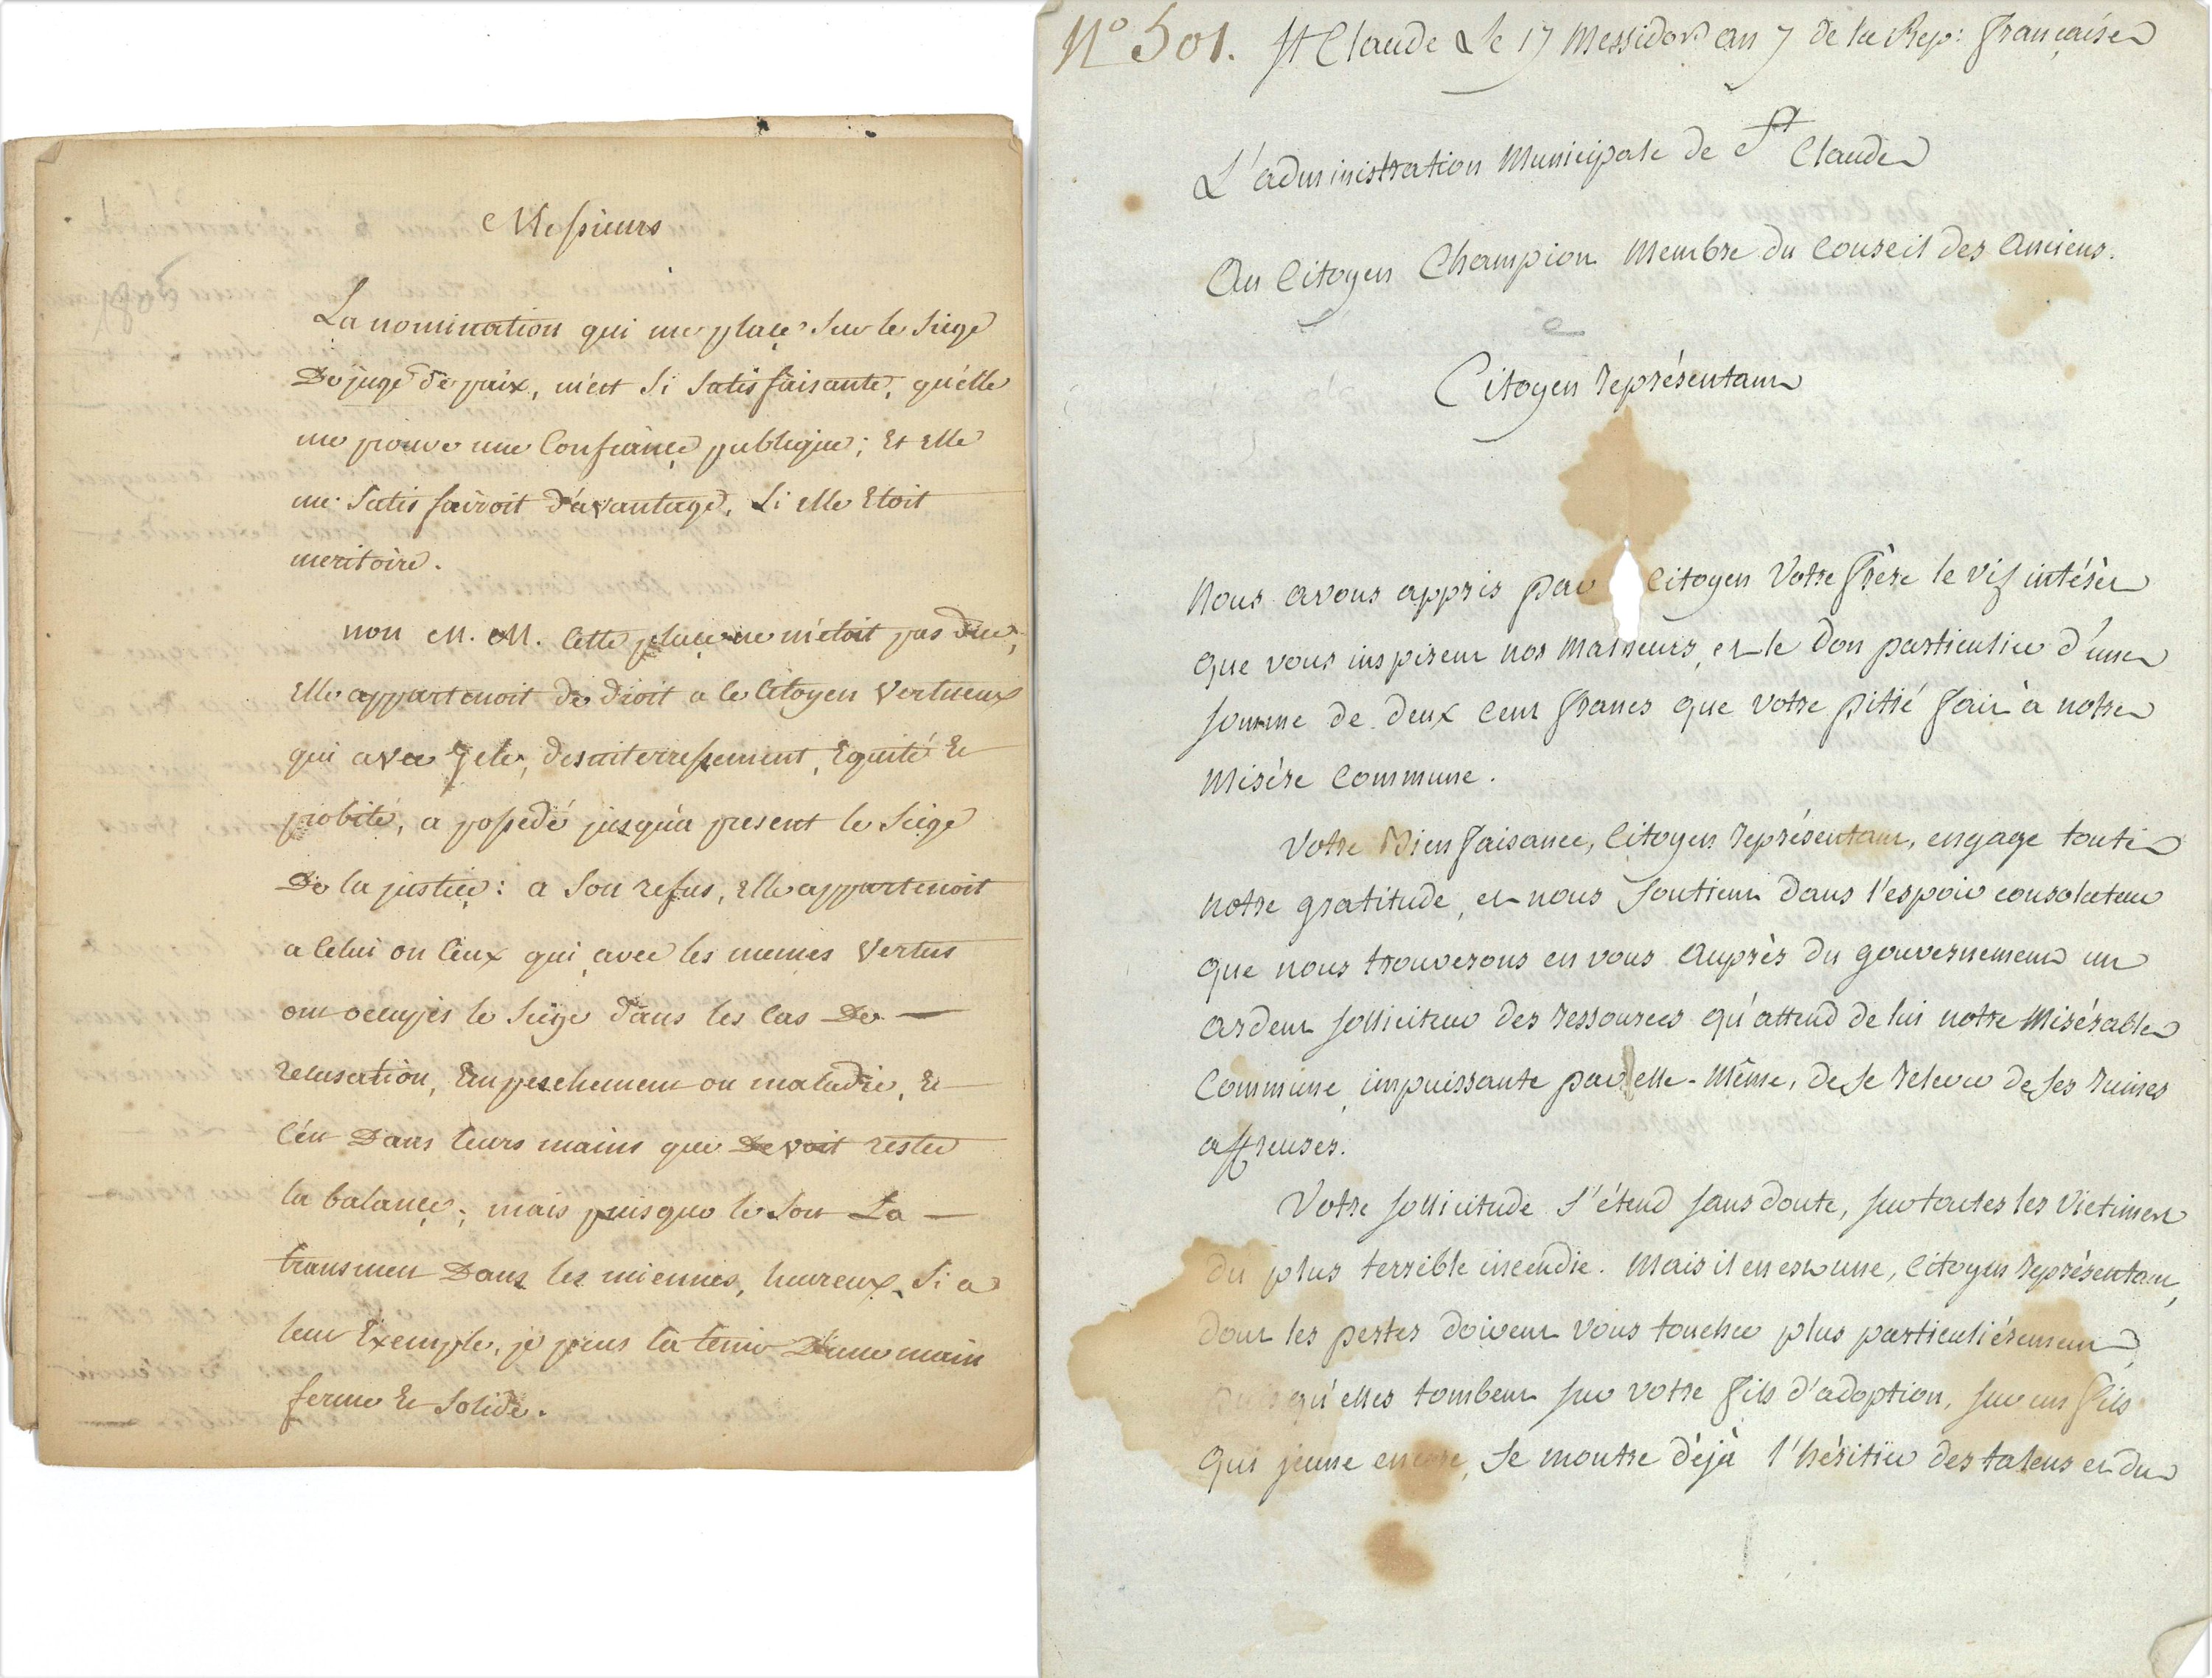 Messieurs
La nomination qui me place sur le siege
De juge de paix, m'est si satisfaisante, qu'elle
me prouve une Confiance publique; Et Elle
me satisfairoit d'avantage, si elle Etoit
meritoire.
non M. M. Cette place ne m'etoit pas due,
Elle appartenoit de droit a ce Citoyen Vertueux
qui avec zele, desinterressement, Equité Et
probité, a possedé jusqu'a present le siege
De la justice: a son refus, Elle appartenoit
a Celui ou Ceux qui avec les memes Vertus
ont occupés le siege dans les Cas De —
recusation, Empeschement ou maladie, Et
C'est Dans leurs mains que Devoit rester
la balance; mais puisque le sort La —
transmet Dans les miennes, heureux, si a
leur Exemple, je peus la tenir D'une main
ferme Et solide.
N° 501. St Claude Le 17 Messidor an 7 de la Rep: française
L'administration Municipale de St Claude
Au Citoyen Champion Membre du Conseil des Anciens.
Citoyen représentant
Nous avons appris par Citoyen Votre frère le vif intérêt
que vous inspirent nos malheurs, et le don particulier d'une
somme de deux cent francs que votre pitié fait à notre
Misère Commune.
Votre Bienfaisance, Citoyen représentant, engage toute
notre gratitude, et nous soutient dans l'espoir consolateur
que nous trouverons en vous auprès du gouvernement un
ardent solliciteur des ressources qu'attend de lui notre Misérable
Commune, impuissante par elle-même, de se relever de ses ruines
affreuses.
Votre sollicitude s'étend sans doute, sur toutes les Victimes
du plus terrible incendie. Mais il en est une, Citoyen représentant,
dont les pertes doivent vous toucher plus particuliérement,
puisqu'elles tombent sur votre fils d'adoption, sur un fils
qui jeune encore, se montre déjà l'héritier des talens et du